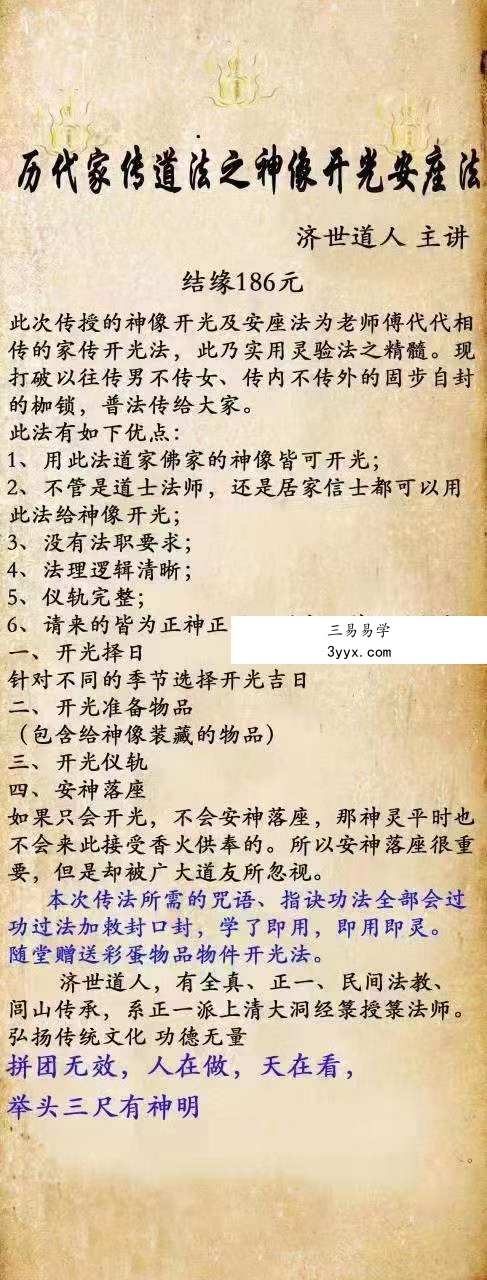 历代家传道法之神像开光安座法
济世道人 主讲
结缘186元
此次传授的神像开光及安座法为老师傅代代相
传的家传开光法，此乃实用灵验法之精髓。现
打破以往传男不传女、传内不传外的固步自封
的枷锁，普法传给大家。
此法有如下优点：
1、用此法道家佛家的神像皆可开光；
2、不管是道士法师，还是居家信士都可以用
此法给神像开光；
3、没有法职要求；
4、法理逻辑清晰；
5、仪轨完整；
6、请来的皆为正神正
三易易学
3yyx.com
一、开光择日
针对不同的季节选择开光吉日
二、开光准备物品
（包含给神像装藏的物品）
三、开光仪轨
四、安神落座
如果只会开光，不会安神落座，那神灵平时也
不会来此接受香火供奉的。所以安神落座很重
要，但是却被广大道友所忽视。
本次传法所需的咒语、指诀功法全部会过
功过法加敕封口封，学了即用，即用即灵。
随堂赠送彩蛋物品物件开光法。
济世道人，有全真、正一、民间法教、
闾山传承，系正一派上清大洞经箓授箓法师。
弘扬传统文化 功德无量
拼团无效，人在做，天在看，
举头三尺有神明